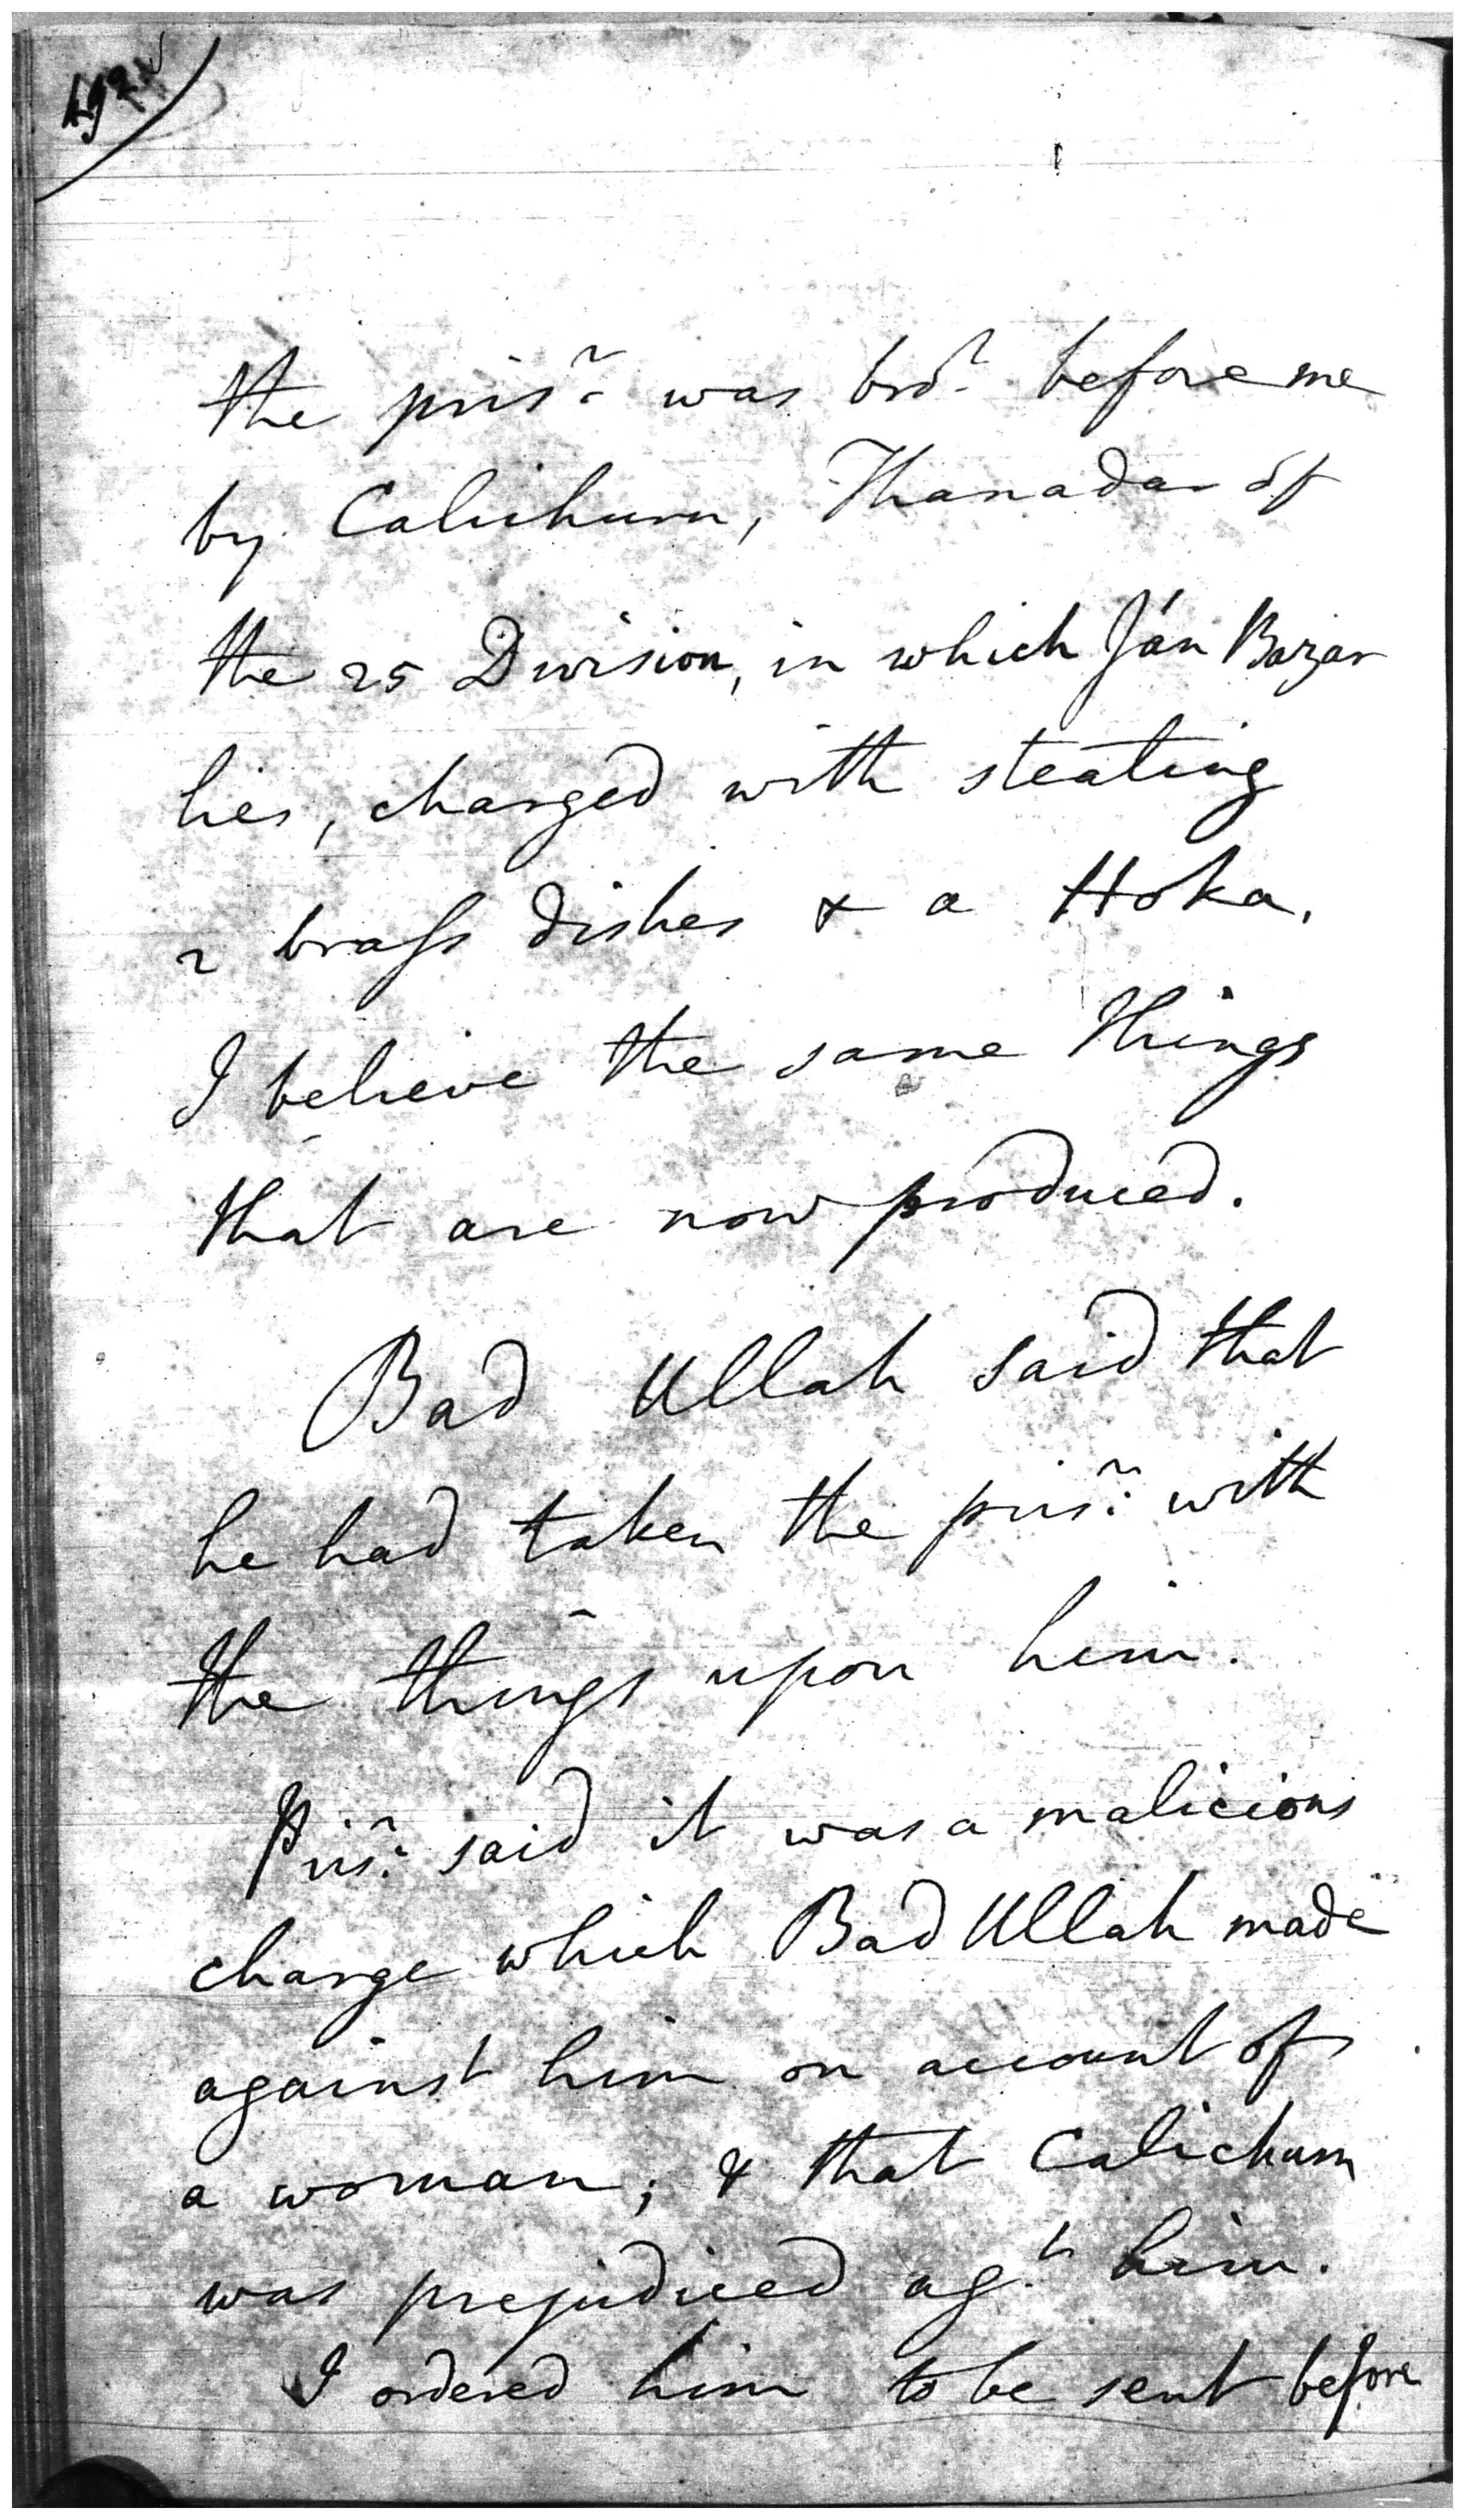 492
the pris.r was bro.t before me
by Calichurn, Thanadar of
the 25 Division, in which Ján Bazar
lies, charged with stealing
2 brass dishes & a Hoka,
I believe the same things
that are now produced.
Bad Ullah said that
he had taken the pris.r with
the things upon him.
Pris.r said it was a malicious
charge which Bad Ullah made
against him on account of
a woman; & that Calichurn
was prejudiced ag.t him.
I ordered him to be sent before